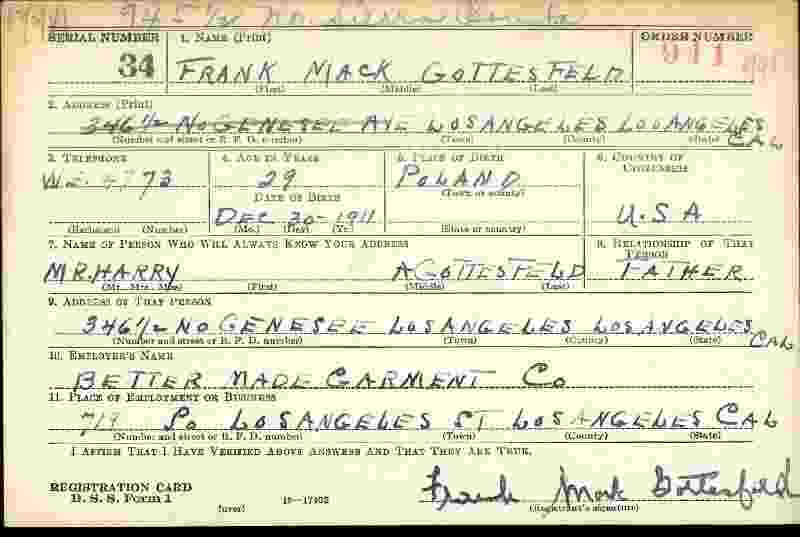 945 1/2 No. Sierra Bonita
SERIAL NUMBER 1. NAME (Print) ORDER NUMBER
34 FRANK MACK GOTTESFELD 911
(First) (Middle) (Last)
2. ADDRESS (Print)
346 1/2 NO GENESEE AVE LOS ANGELES LOS ANGELES CAL
(Number and street or R. F. D. number) (Town) (County) (State)
3. TELEPHONE 4. AGE IN YEARS 5. PLACE OF BIRTH 6. COUNTRY OF CITIZENSHIP
29 POLAND
DATE OF BIRTH (Town or county)
DEC 30-1911 U.S A
(Exchange) (Number) (Mo.) (Day) (Yr.) (State or country)
7. NAME OF PERSON WHO WILL ALWAYS KNOW YOUR ADDRESS 8. RELATIONSHIP OF THAT PERSON
MR. HARRY A GOTTESFELD FATHER
(Mr., Mrs., Miss) (First) (Middle) (Last)
9. ADDRESS OF THAT PERSON
346 1/2 NO GENESEE LOS ANGELES LOS ANGELES CAL
(Number and street or R. F. D. number) (Town) (County) (State)
10. EMPLOYER'S NAME
BETTER MADE GARMENT CO
11. PLACE OF EMPLOYMENT OR BUSINESS
719 SO LOS ANGELES ST LOS ANGELES CAL
(Number and street or R. F. D. number) (Town) (County) (State)
I AFFIRM THAT I HAVE VERIFIED ABOVE ANSWERS AND THAT THEY ARE TRUE.
REGISTRATION CARD
D. S. S. Form 1 16-17105 Frank Mack Gottesfeld
(over) (Registrant's signature)